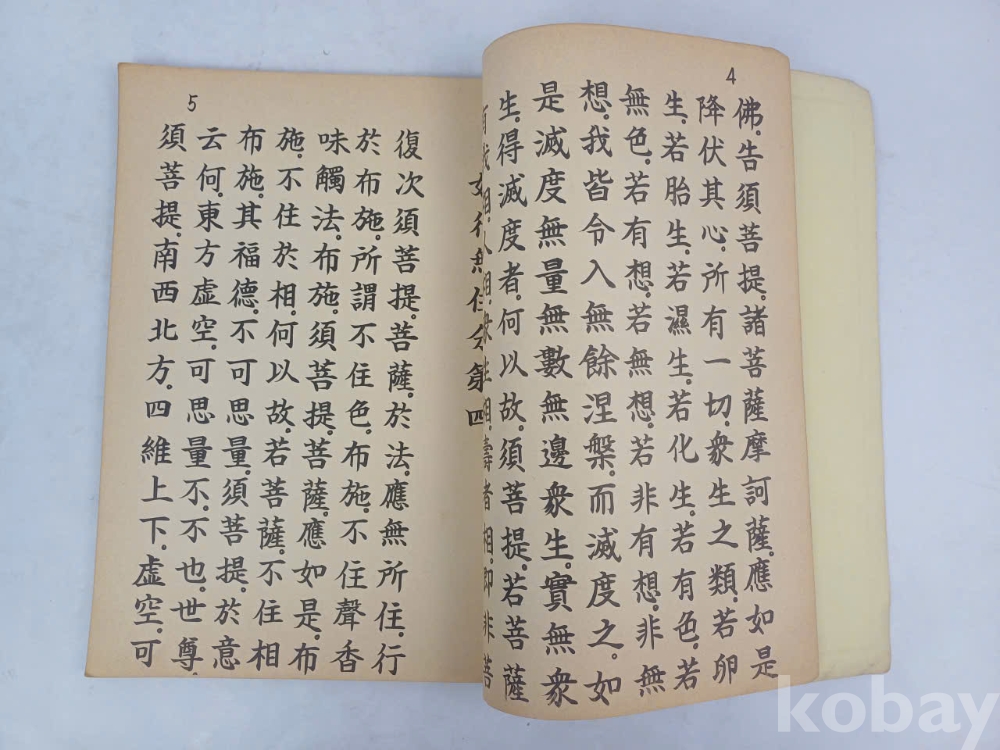 4
佛。告須菩提。諸菩薩摩訶薩。應如是
降伏其心。所有一切。衆生之類。若卵
生。若胎生。若濕生。若化生。若有色。若
無色。若有想。若無想。若非有想。非無
想。我皆令入無餘涅槃。而滅度之。如
是滅度無量無數無邊衆生。實無衆
生。得滅度者。何以故。須菩提。若菩薩
有我相。人相。衆生相。壽者相。卽非菩
行無住分第四
5
復次須菩提。菩薩。於法。應無所住。行
於布施。所謂不住色。布施。不住聲香
味觸法。布施。須菩提。菩薩。應如是。布
施。不住於相。何以故。若菩薩。不住相
布施。其福德。不可思量。須菩提。於意
云何。東方虛空。可思量不。不也。世尊。
須菩提。南西北方。四維上下。虛空。可
kobay